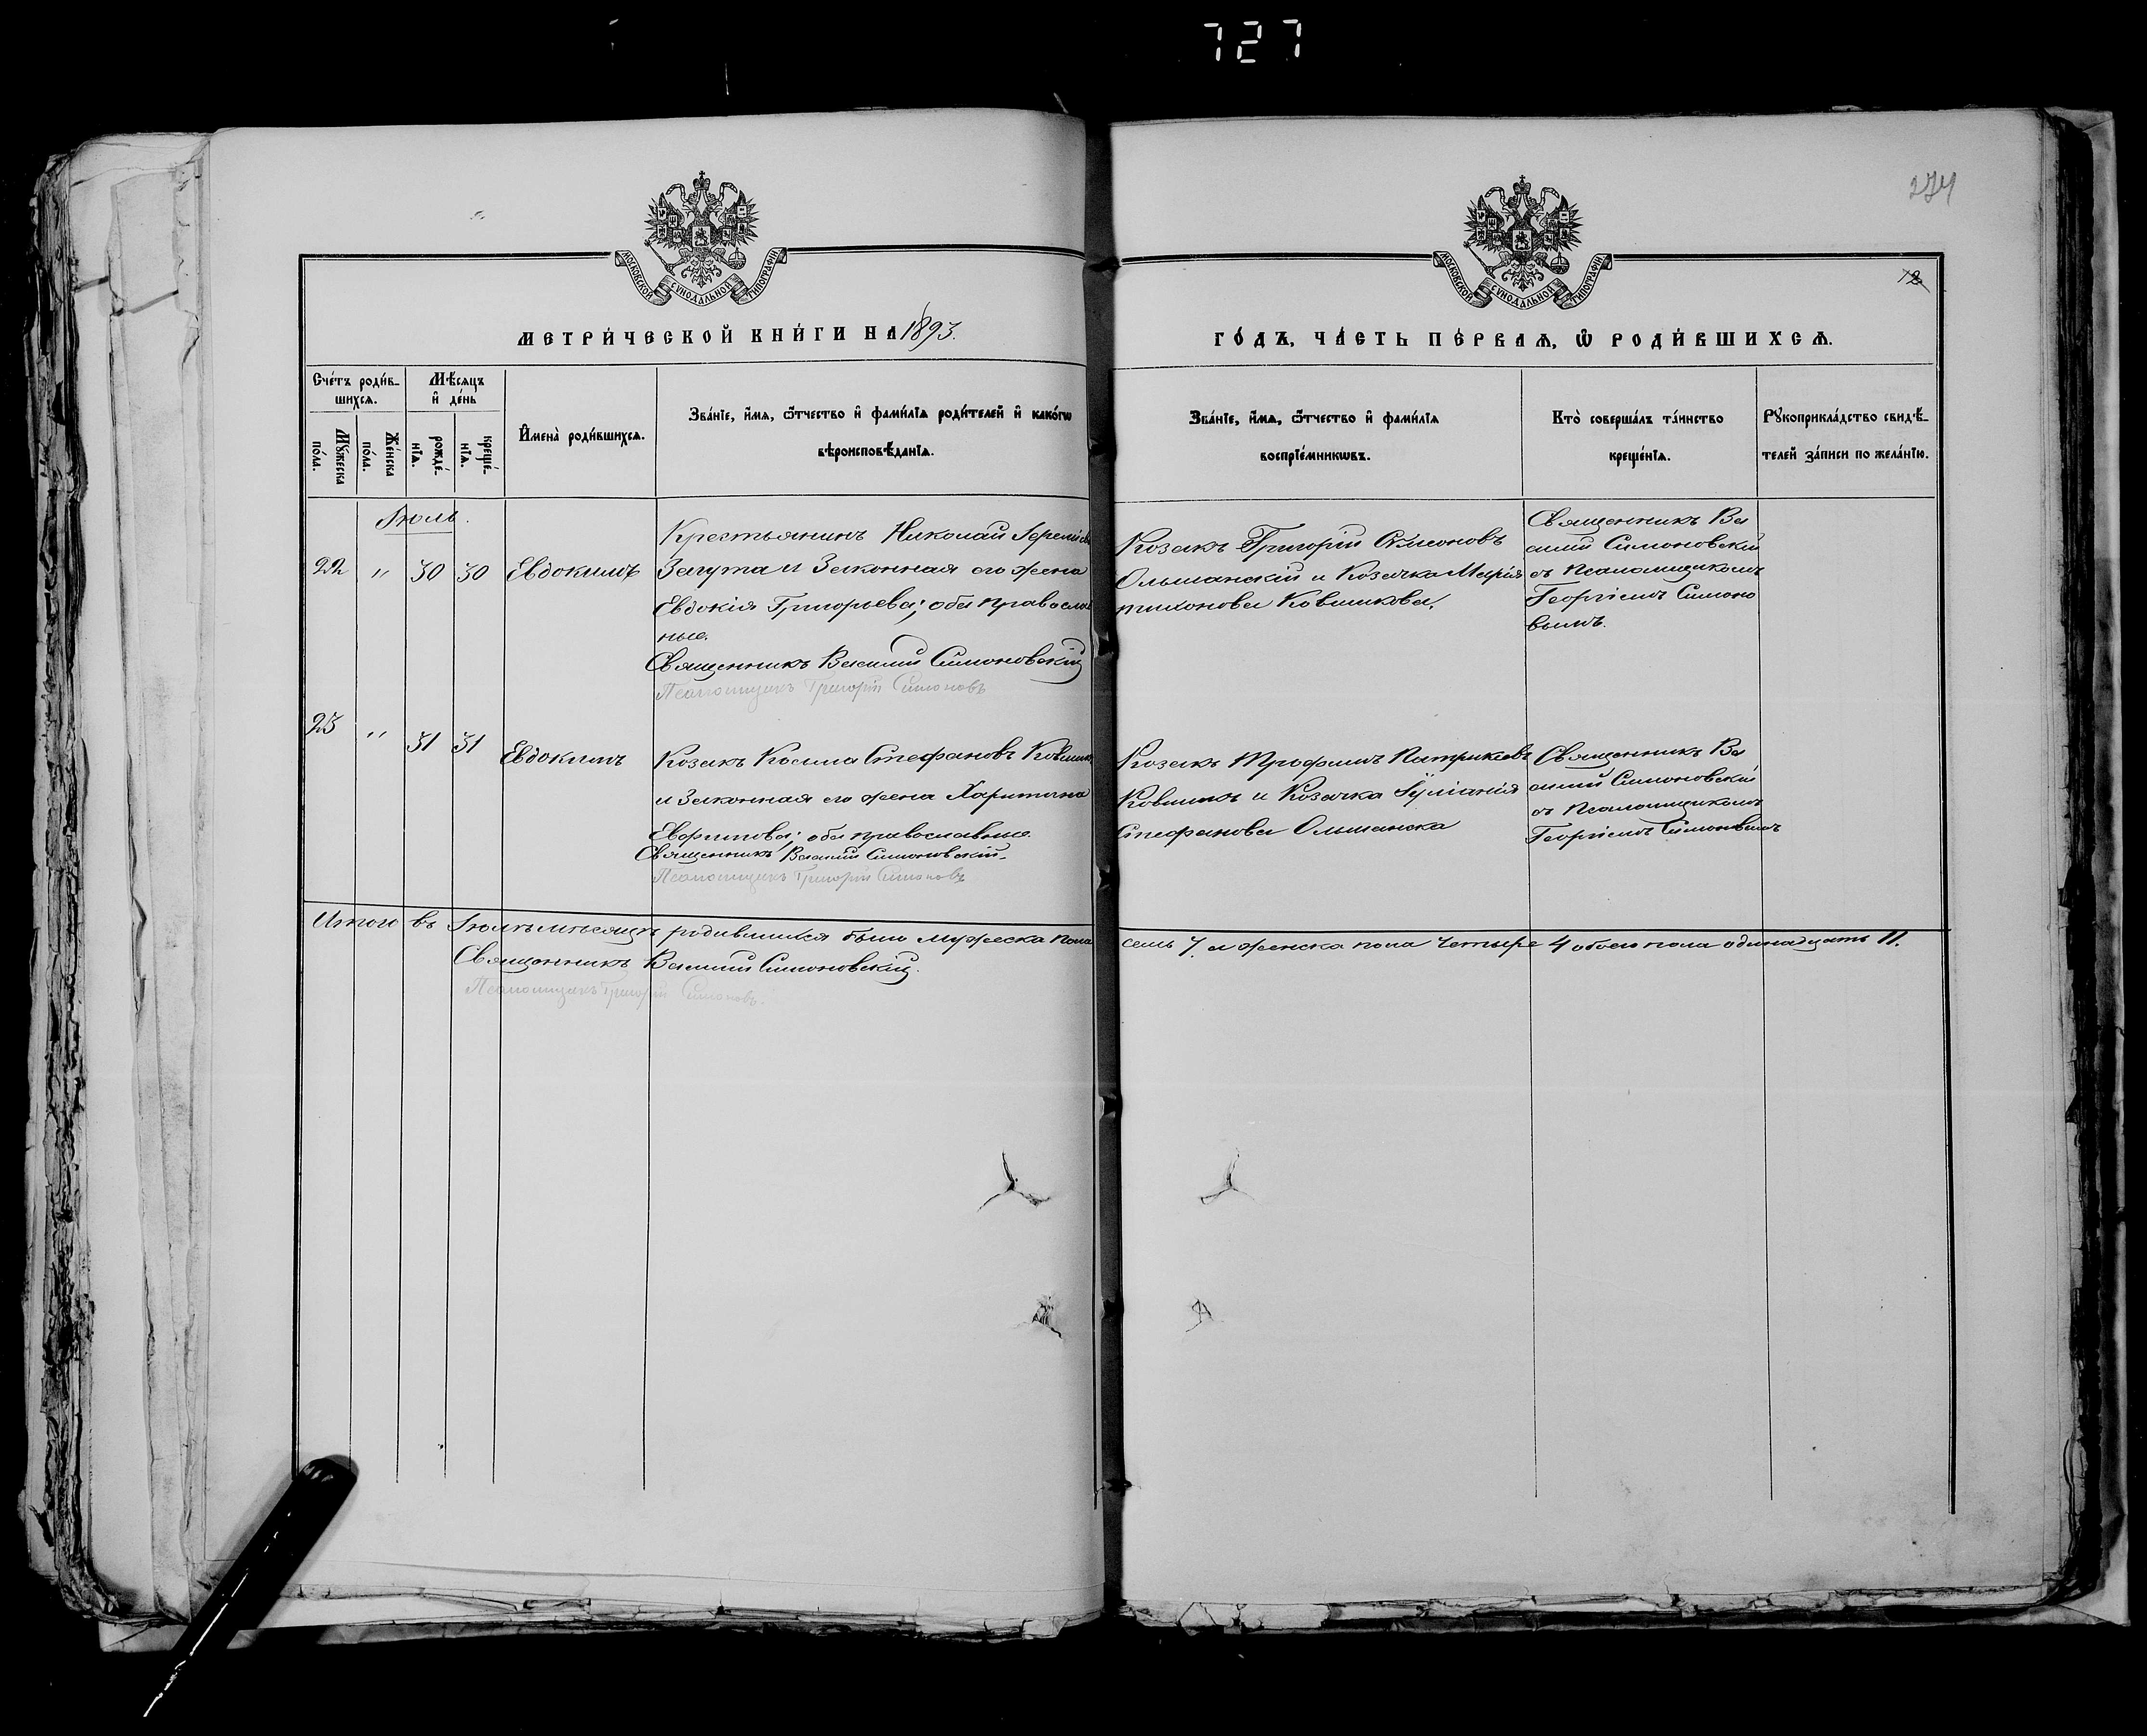 727
274
12
МОСКОВСКОЙ СѴНОДАЛЬНОЙ ТИПОГРАФІИ
МОСКОВСКОЙ СѴНОДАЛЬНОЙ ТИПОГРАФІИ
МЕТРИ́ЧЕСКОЙ КНИ́ГИ НА 1893.
ГО́ДЪ, ЧА́СТЬ ПЕ́РВАѦ, Ѡ РОДИ́ВШИХСѦ.
Сче́тъ роди́в-
шихсѧ.
Мꙋ́жеска
по́ла.
Же́нска
по́ла.
Мѣ́сяцъ
и҆ де́нь
рожде́-
нїѧ.
креще́-
нїѧ.
И҆мена̀ роди́вшихсѧ.
Зва́нїе, и҆́мѧ, ѻ҆́тчество и҆ фами́лїѧ роди́телей и҆ како́гѡ
вѣроисповѣ́данїѧ.
Зва́нїе, и҆́мѧ, ѻ҆́тчество и҆ фами́лїѧ
воспрїе́мникѡвъ.
Кто̀ соверша́лъ та́инство
креще́нїѧ.
Рꙋкоприкла́дство свидѣ́-
телей за́писи по жела́нїю.
Іюль.
22 " 30 30 Евдокимъ
Крестьянинъ Николай
Загута и Законная его жена
Евдокія Григорьева; оба православ
ные.
Священникъ Василій Симоновскій
Псаломщикъ Григорій Симоновъ
Козакъ Григорій Симеоновъ
Ольшанскій и Козачка Марія
тихонова Ковшикова.
Священникъ Ва
силій Симоновскій
съ Псаломщикомъ
Георгіемъ Симоно
вымъ.
23 " 31 31 Евдокимъ
Козакъ Косма Стефановъ
и Законная его жена Харитина
Евфимова; оба православные.
Священникъ Василій Симоновскій.
Псаломщикъ Григорій Симоновъ
Козакъ Трофимъ
и Козачка Іуліанія
Стефанова Ольшанска
Священникъ Ва
силій Симоновскій
съ Псаломщикомъ
Георгіемъ Симоновымъ
Итого въ Іюлѣ мѣсяцѣ родившихся было мужеска пола
семь 7. и женска пола четыре 4 обоего пола одинадцать 11.
Священникъ Василій Симоновскій.
Псаломщикъ Григорій Симоновъ.